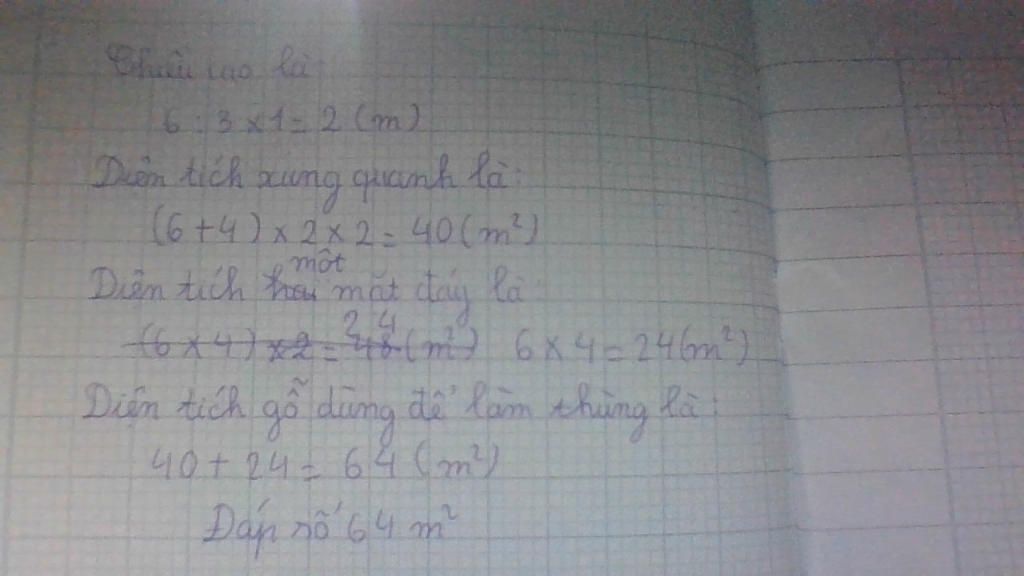 Chiều cao là:
6 : 3 x 1 = 2 (m)
Diện tích xung quanh là:
(6 + 4) x 2 x 2 = 40 (m²)
một
Diện tích hai mặt đáy là:
24
(6 x 4) x 2 = 48 (m²) 6 x 4 = 24 (m²)
Diện tích gỗ dùng để làm thùng là:
40 + 24 = 64 (m²)
Đáp số 64 m²